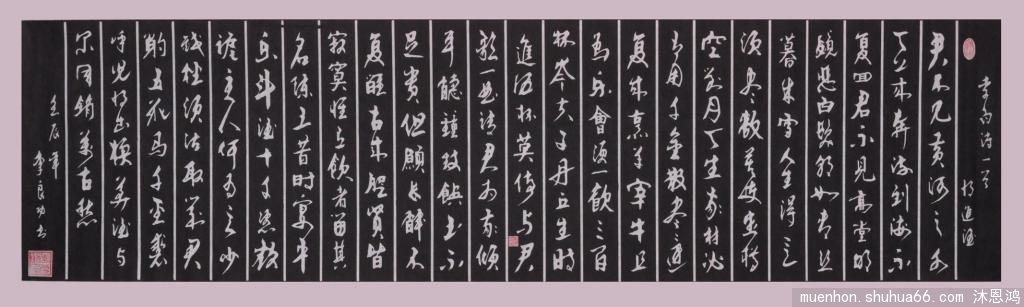 李白诗一首
将進酒
君不见黄河之水
天上来奔流到海不
复回君不见高堂明
镜悲白髮朝如青丝
暮成雪人生得意
须尽歡莫使金樽
空对月天生我材必
有用千金散尽还
复来烹羊宰牛且
为乐會须一飲三百
杯岑夫子丹丘生将
進酒杯莫停与君
歌一曲请君为我倾
耳聽鐘鼓饌玉不
足贵但願长醉不
复醒古来聖贤皆
寂寞惟有飲者留其
名陈王昔时宴平
乐斗酒十千恣歡
谑主人何为言少
钱径须沽取对君
酌五花马千金裘
呼兒将出换美酒与
尔同销萬古愁
壬辰年
李良功书
muenhon.shuhua66.com 沐恩鸿